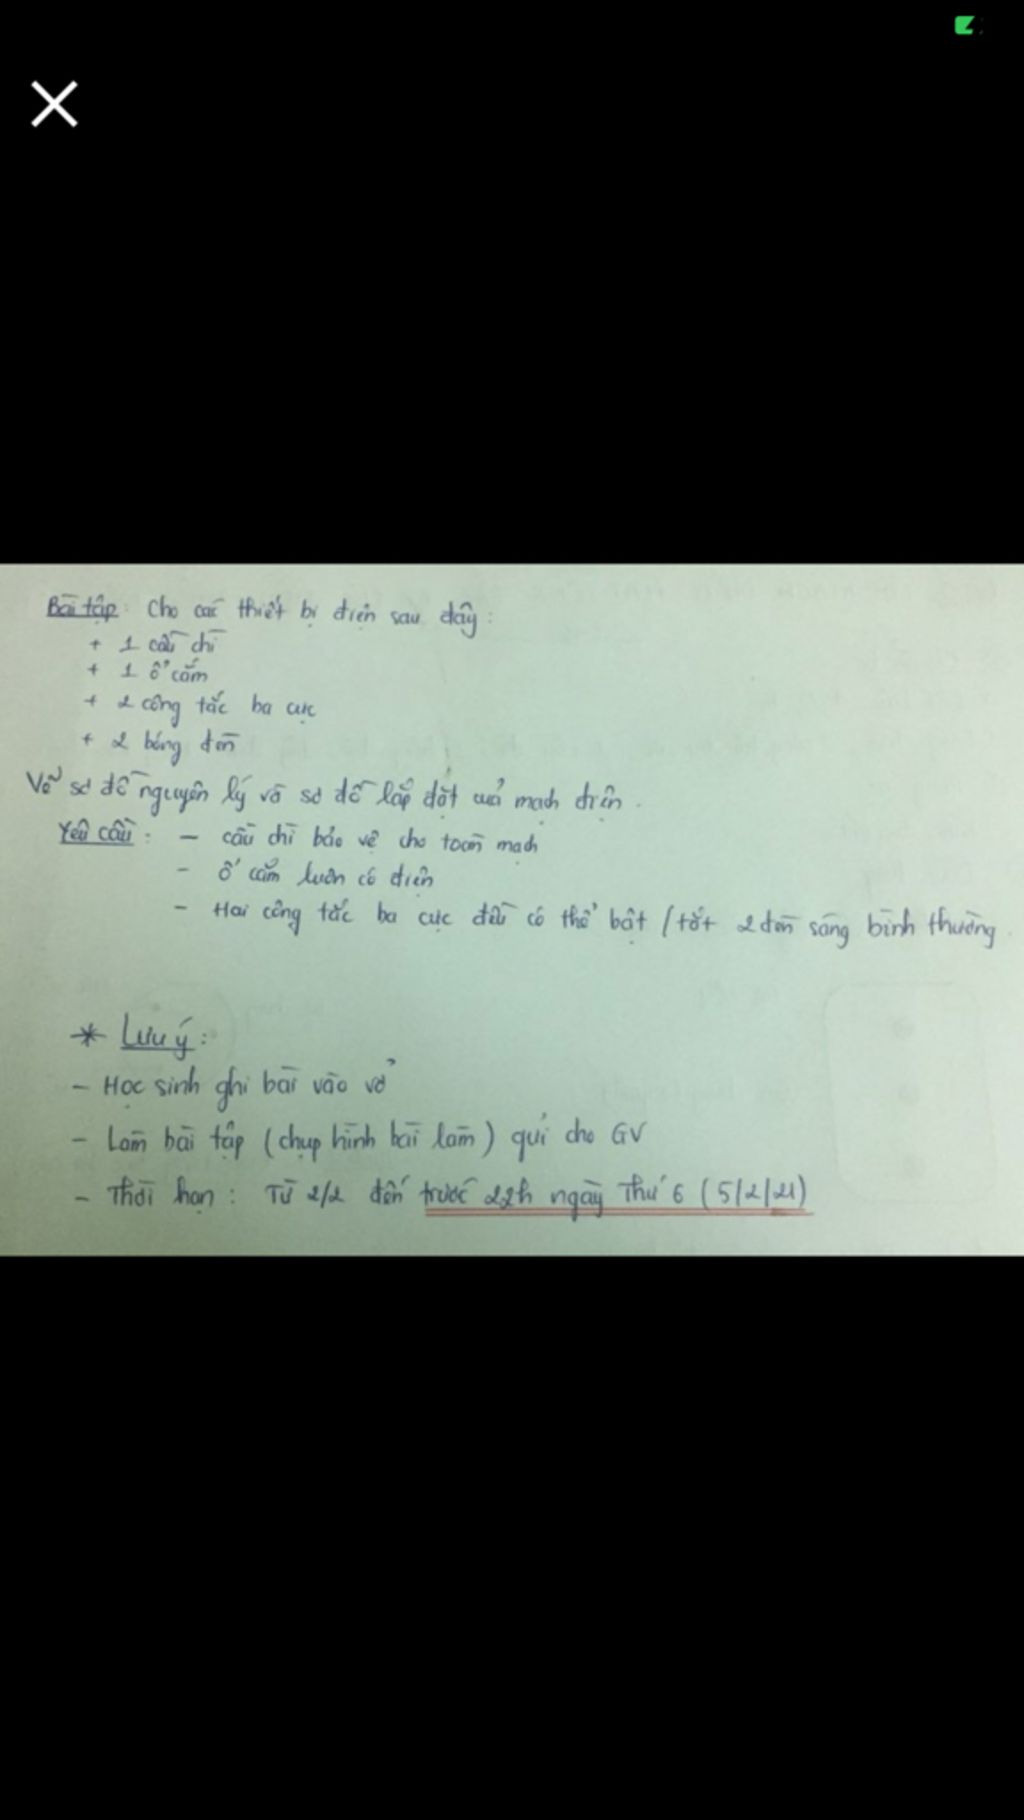 Bài tập: Cho các thiết bị điện sau đây:
+ 1 cầu chì
+ 1 ổ cắm
+ 2 công tắc ba cực
+ 2 bóng đèn
Vẽ sơ đồ nguyên lý và sơ đồ lắp đặt của mạch điện.
Yêu cầu: - cầu chì bảo vệ cho toàn mạch
- ổ cắm luôn có điện
- Hai công tắc ba cực đều có thể bật / tắt 2 đèn sáng bình thường.
* Lưu ý:
- Học sinh ghi bài vào vở
- Làm bài tập (chụp hình bài làm) gửi cho GV
- Thời hạn: Từ 2/2 đến trước 22h ngày Thứ 6 (5/2/21)